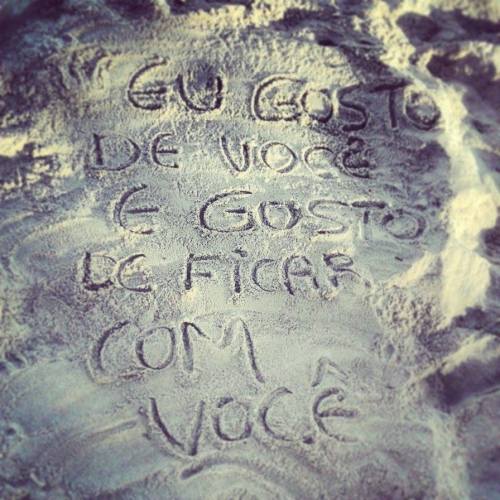 EU GOSTO
DE VOCÊ
E GOSTO
DE FiCAR
COM
VOCÊ